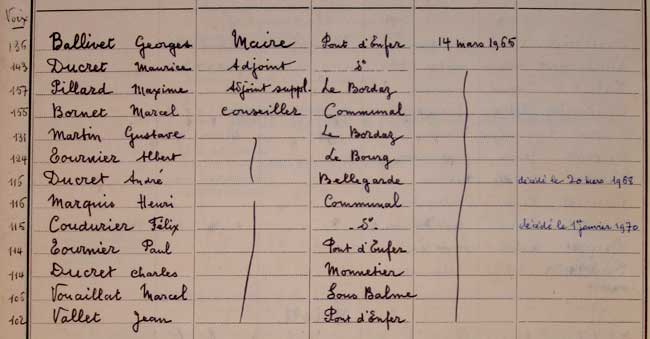 Voix
136 Ballivet Georges Maire Pont d'Enfer 14 mars 1965
143 Ducret Maurice Adjoint d°
157 Pillard Maxime Adjoint suppl. Le Bordaz
155 Bornet Marcel Conseiller Communal
131 Martin Gustave Le Bordaz
124 Fournier Albert Le Bourg
116 Ducret André Bellegarde décédé le 20 mars 1968
116 Marquis Henri Communal
115 Coudurier Félix d° décédé le 1er janvier 1970
114 Fournier Paul Pont d'Enfer
114 Ducret Charles Monnetier
105 Vouaillat Marcel Sous Balme
102 Vallet Jean Pont d'Enfer